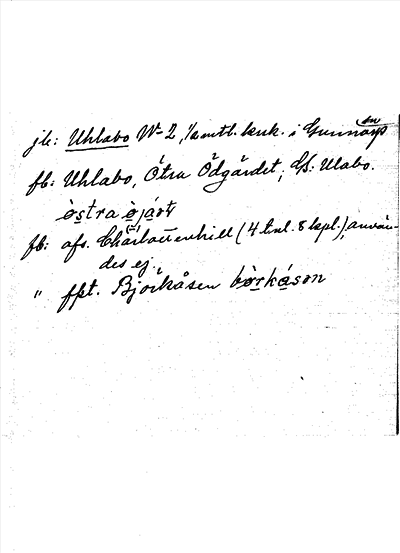 jb: Uhlabo No 2, 1/2 mtl. kruk. i Gunnarp
fb: Uhlabo, Östra Ödgärdet; Gf: Ulabo.
östra öjáɷt
fb: afs. Charlottenhill (4 tunl. 8 kpl.), använ-
des ej.
" fpt. Björkåsen bö̀rkáson